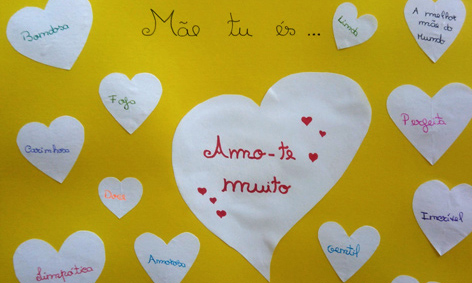 Mãe tu és ...
Bondosa
Linda
A melhor
mãe do
Mundo
Fofa
Perfeita
Carinhosa
Amo-te
muito
Doce
Incrível
Simpática
Amorosa
Gentil